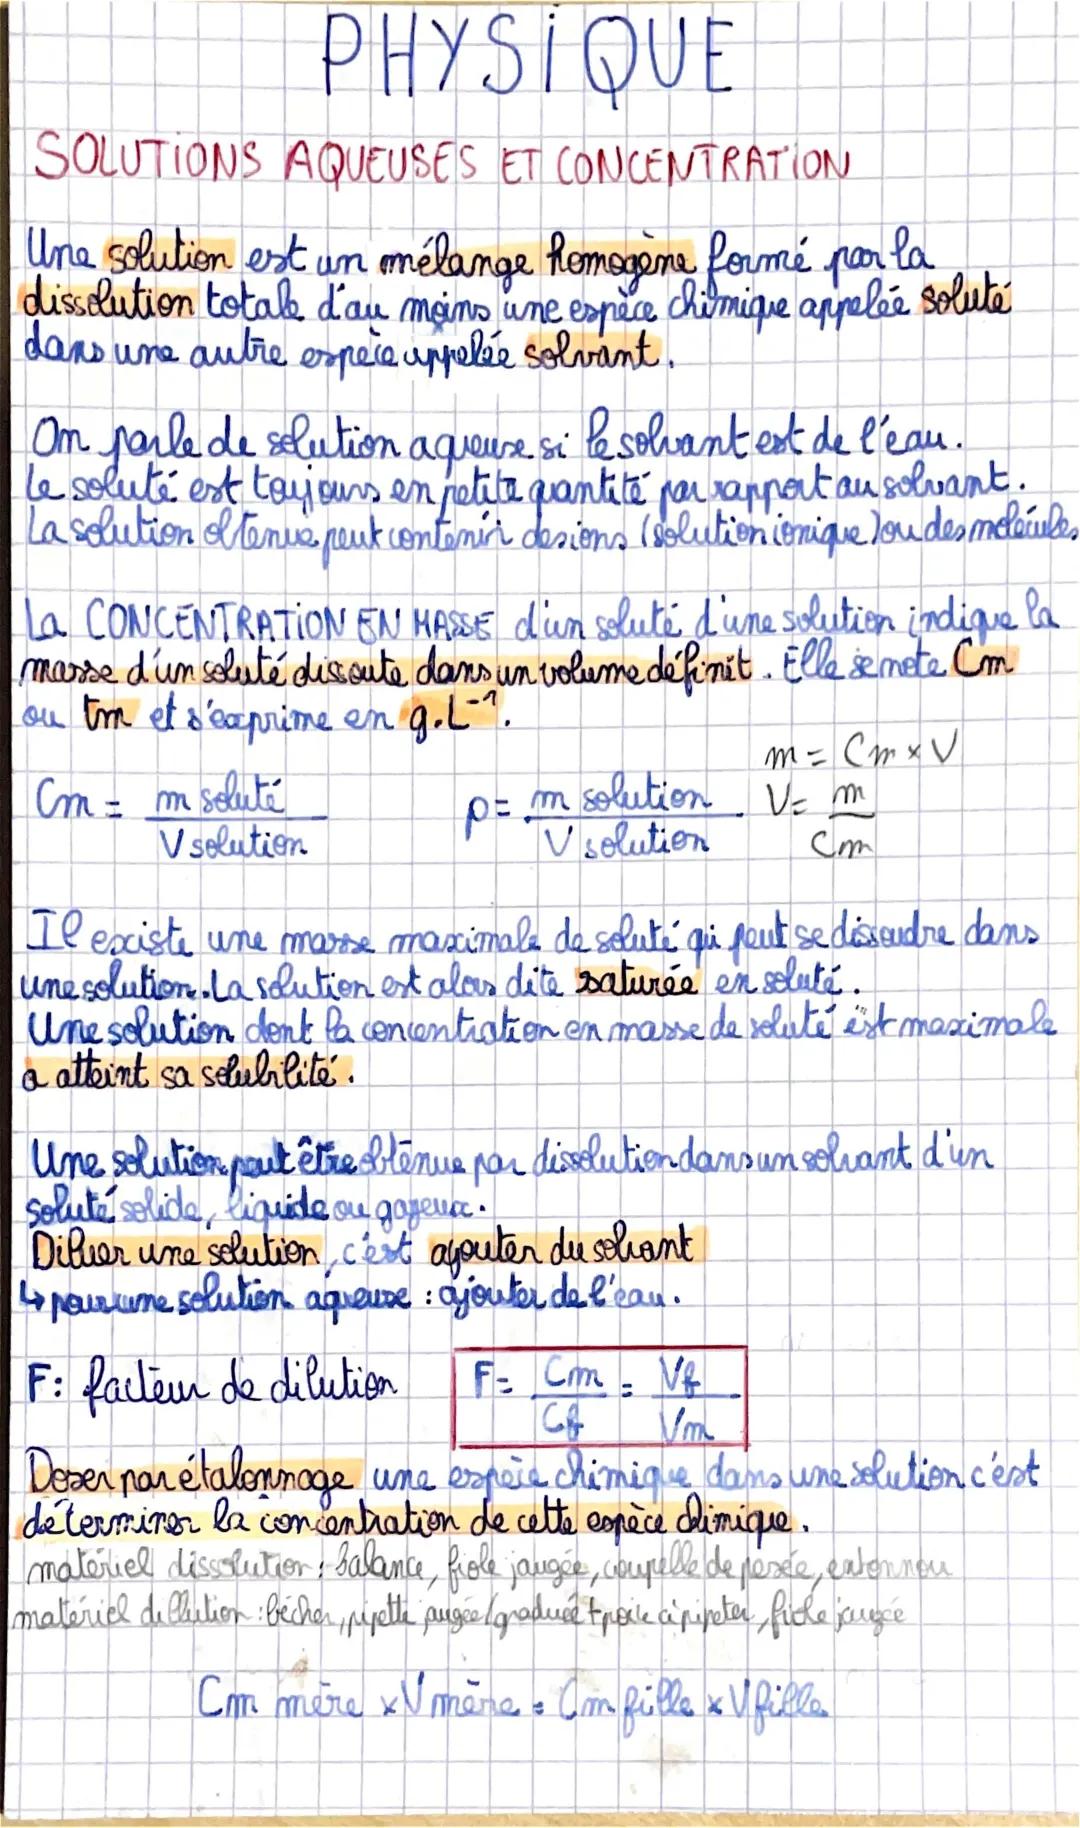 PHYSIQUE
SOLUTIONS AQUEUSES ET CONCENTRATION
Une solution est un mélange homogène formé par la
dissolution totale d'au moins une espèce chimique appelée soluté
dans une autre espèce appelée solvant.
On parle de solution aqueuse si le solvant est de l'eau.
Le soluté est toujours en petite quantité par rapport au solvant.
La solution obtenue peut contenir des ions (solution ionique) ou des molécules.
La CONCENTRATION EN MASSE d'un soluté d'une solution indique la
masse d'un soluté dissoute dans un volume définit. Elle se note Cm
ou tm et s'exprime en g.L⁻¹.
m = Cm × V
Cm = m soluté / V solution ρ = m solution / V solution V = m / Cm
Il existe une masse maximale de soluté qui peut se dissoudre dans
une solution. La solution est alors dite saturée en soluté.
Une solution dont la concentration en masse de soluté est maximale
a atteint sa solubilité.
Une solution peut être obtenue par dissolution dans un solvant d'un
soluté solide, liquide ou gazeux.
Diluer une solution, c'est ajouter du solvant
↳ pour une solution aqueuse : ajouter de l'eau.
F: facteur de dilution F = Cm / Cf = Vf / Vm
Doser par étalonnage une espèce chimique dans une solution c'est
déterminer la concentration de cette espèce chimique.
matériel dissolution : balance, fiole jaugée, coupelle de pesée, entonnou
matériel dillution : bécher, pipette jaugée/graduée + poire à pipeter, fiole jaugée
Cm mère × V mère = Cm fille × V fille